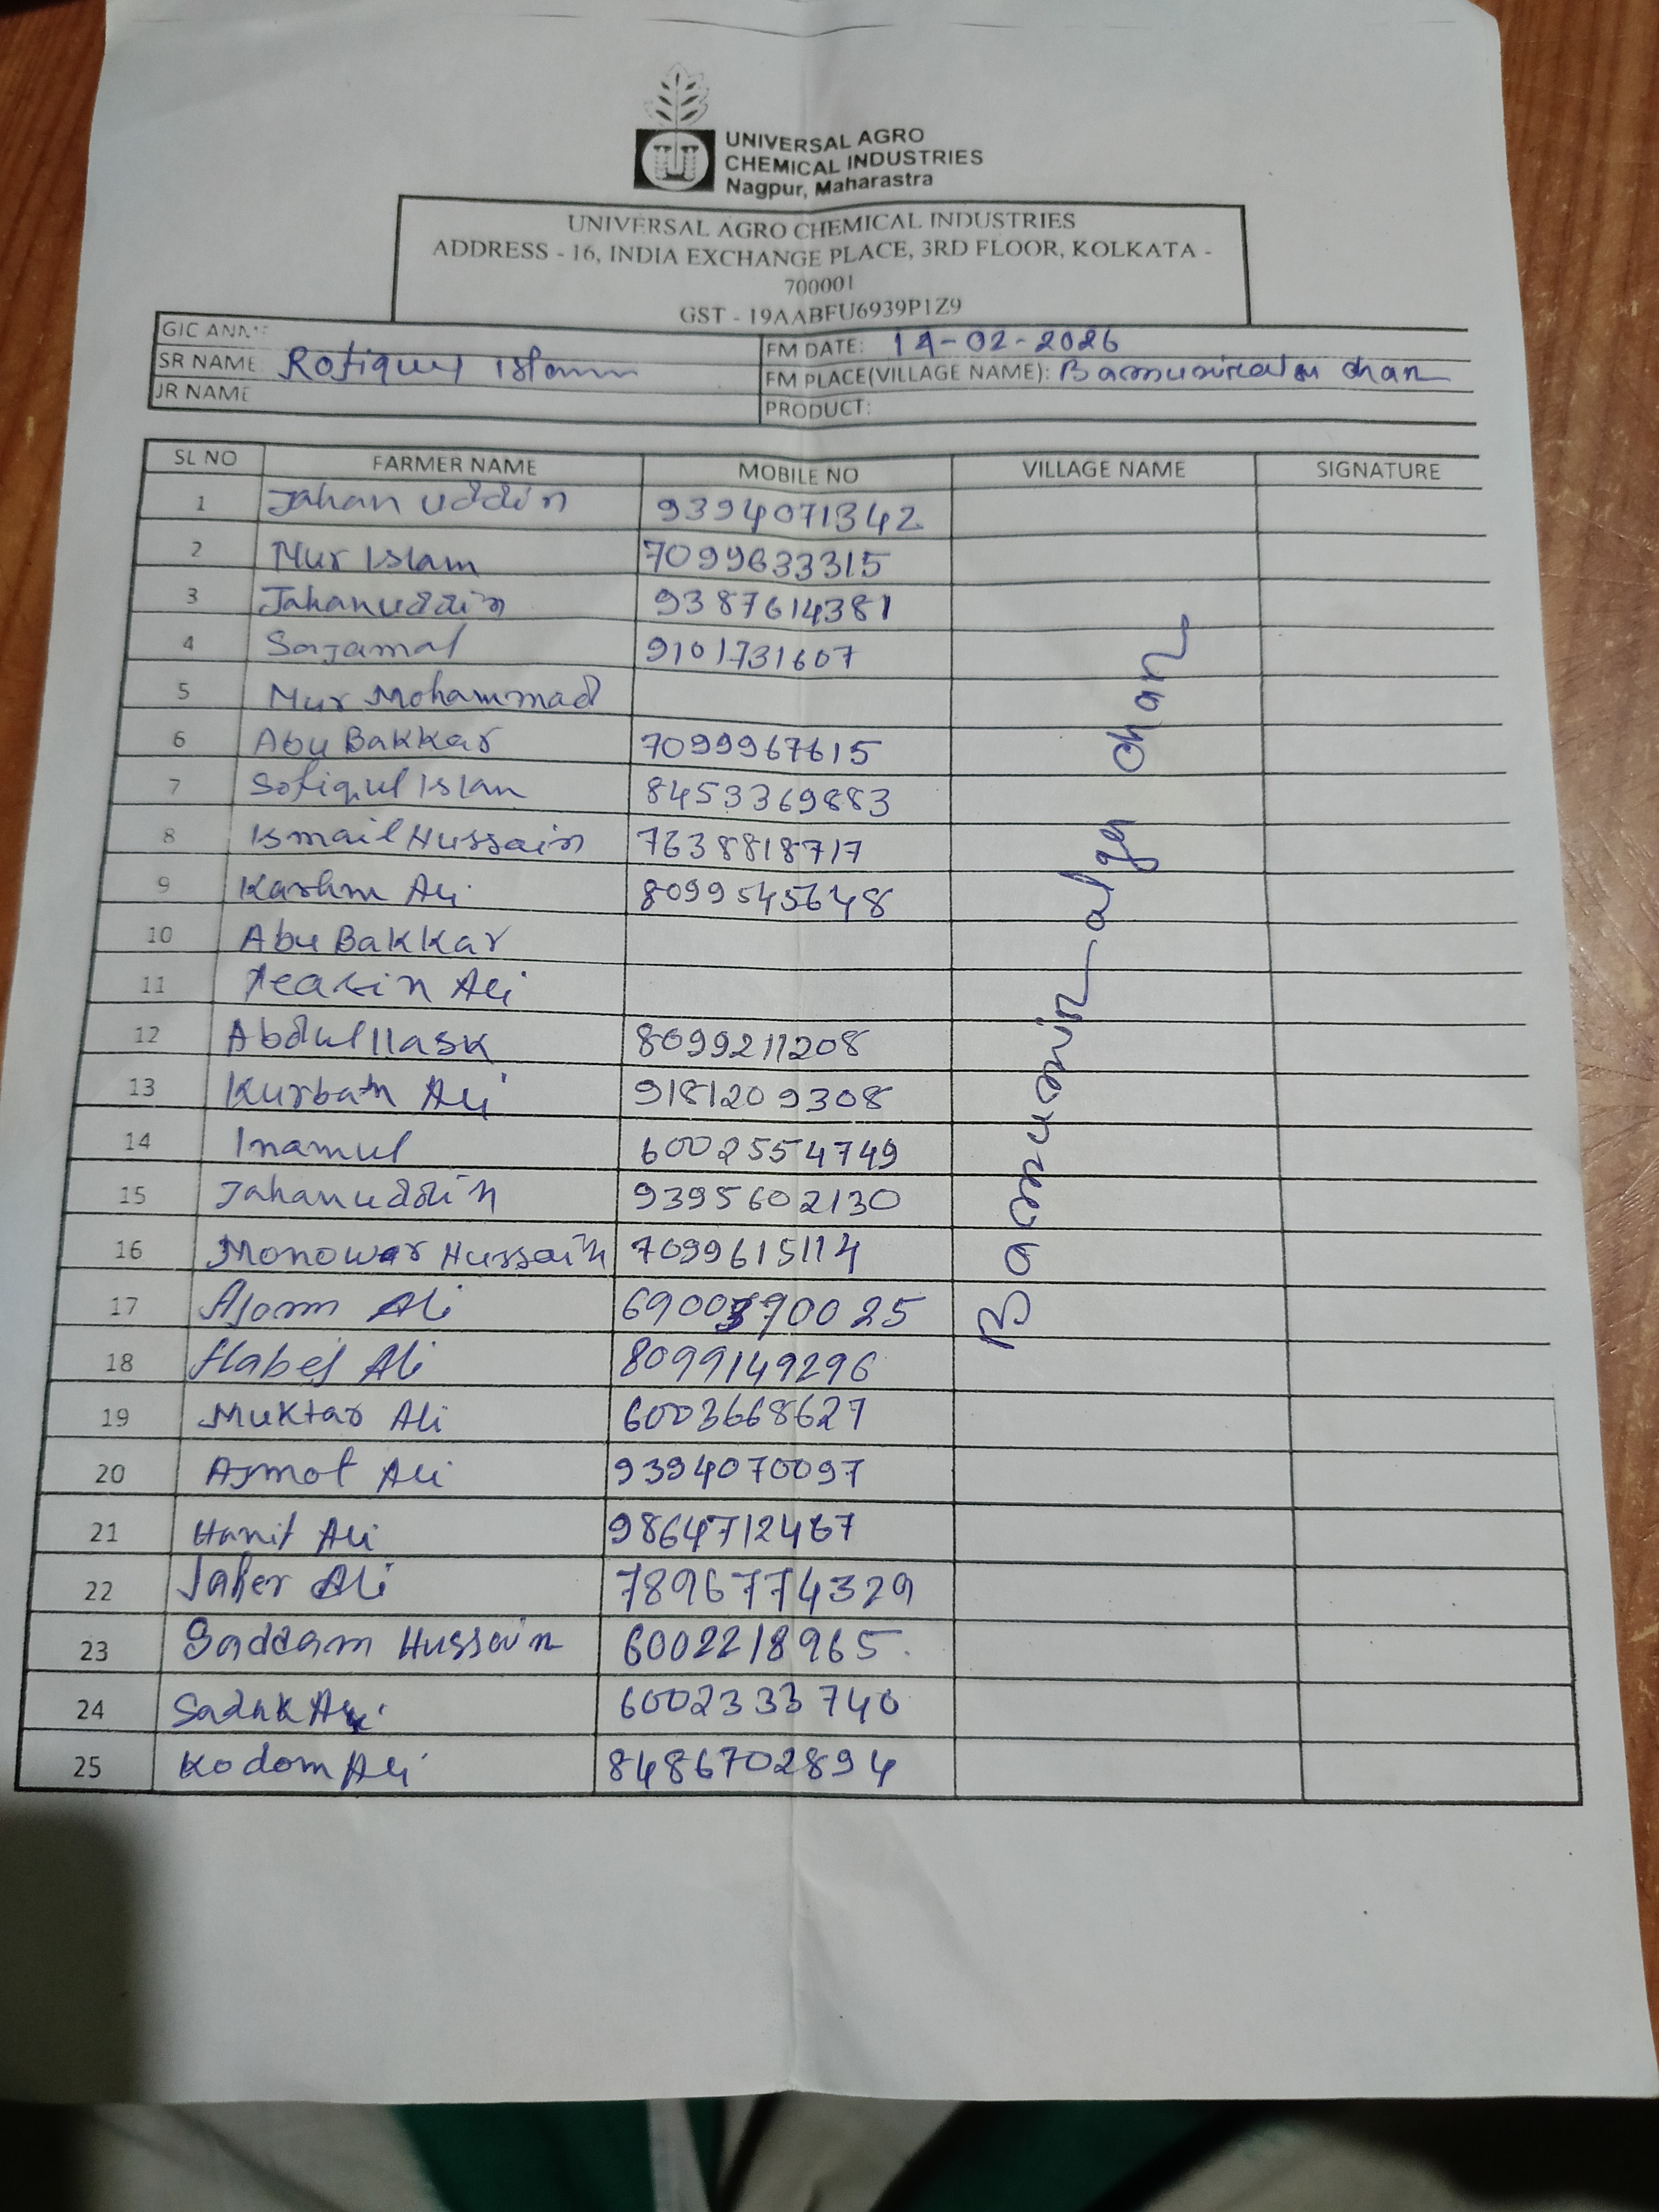 UNIVERSAL AGRO
CHEMICAL INDUSTRIES
Nagpur, Maharastra
UNIVERSAL AGRO CHEMICAL INDUSTRIES
ADDRESS - 16, INDIA EXCHANGE PLACE, 3RD FLOOR, KOLKATA -
700001
GST - 19AABFU6939P1Z9
GIC
FM DATE: 14-02-2026
SR NAME: Rofiqul Islam
FM PLACE(VILLAGE NAME): char
JR NAME
PRODUCT:
SL NO FARMER NAME MOBILE NO VILLAGE NAME SIGNATURE
1 Jahan uddin 9394071342
2 Nur Islam 7099633315
3 Jahanuddin 9387614381
4 Sajamal 9101731607
5 Nur Mohammad
6 Abu Bakkar 7099967615
7 Sofiqul Islam 8453369883
8 Ismail Hussain 7638818717
9 Ali 8099545648
10 Abu Bakkar
11 Ali
12 Abdul 8099211208
13 Kurban Ali 9181209308
14 Inamul 6002554749
15 Jahanuddin 9395602130
16 Monowar Hussain 7099615114
17 Ajom Ali
18 Ali 8099149296
19 Muktar Ali 6003668627
20 Ajmot Ali 9394070097
21 Hanif Ali
22 Jaher Ali 7896774329
23 Saddam Hussain 6002218965
24 Ali 6002333740
25 Kodom Ali 8486702894
char